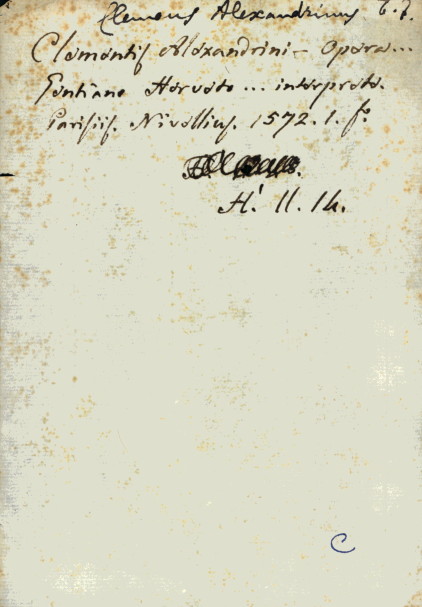 Clemens Alexandrinus T. J.
Clementis Alexandrini – Opera...
Gentiano Herveto ... interprete.
Parisiis. Nivellius. 1572. 1. fº
H! II. 14.
C